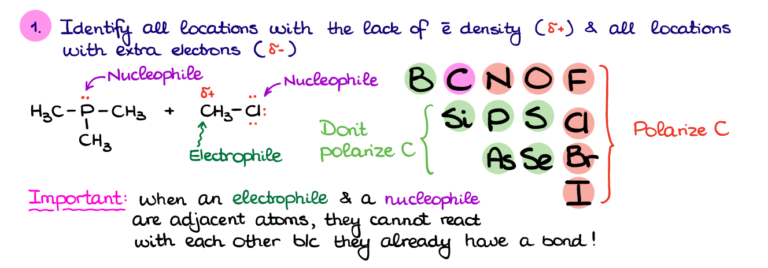 1. Identify all locations with the lack of ē density (δ+) & all locations
with extra electrons (δ-)
Nucleophile
Nucleophile
δ+
H₃C-P-CH₃ + CH₃-Cl:
CH₃
Electrophile
B C N O F
Si P S Cl
As Se Br
I
Don't
polarize C
Polarize C
Important: when an electrophile & a nucleophile
are adjacent atoms, they cannot react
with each other b/c they already have a bond!